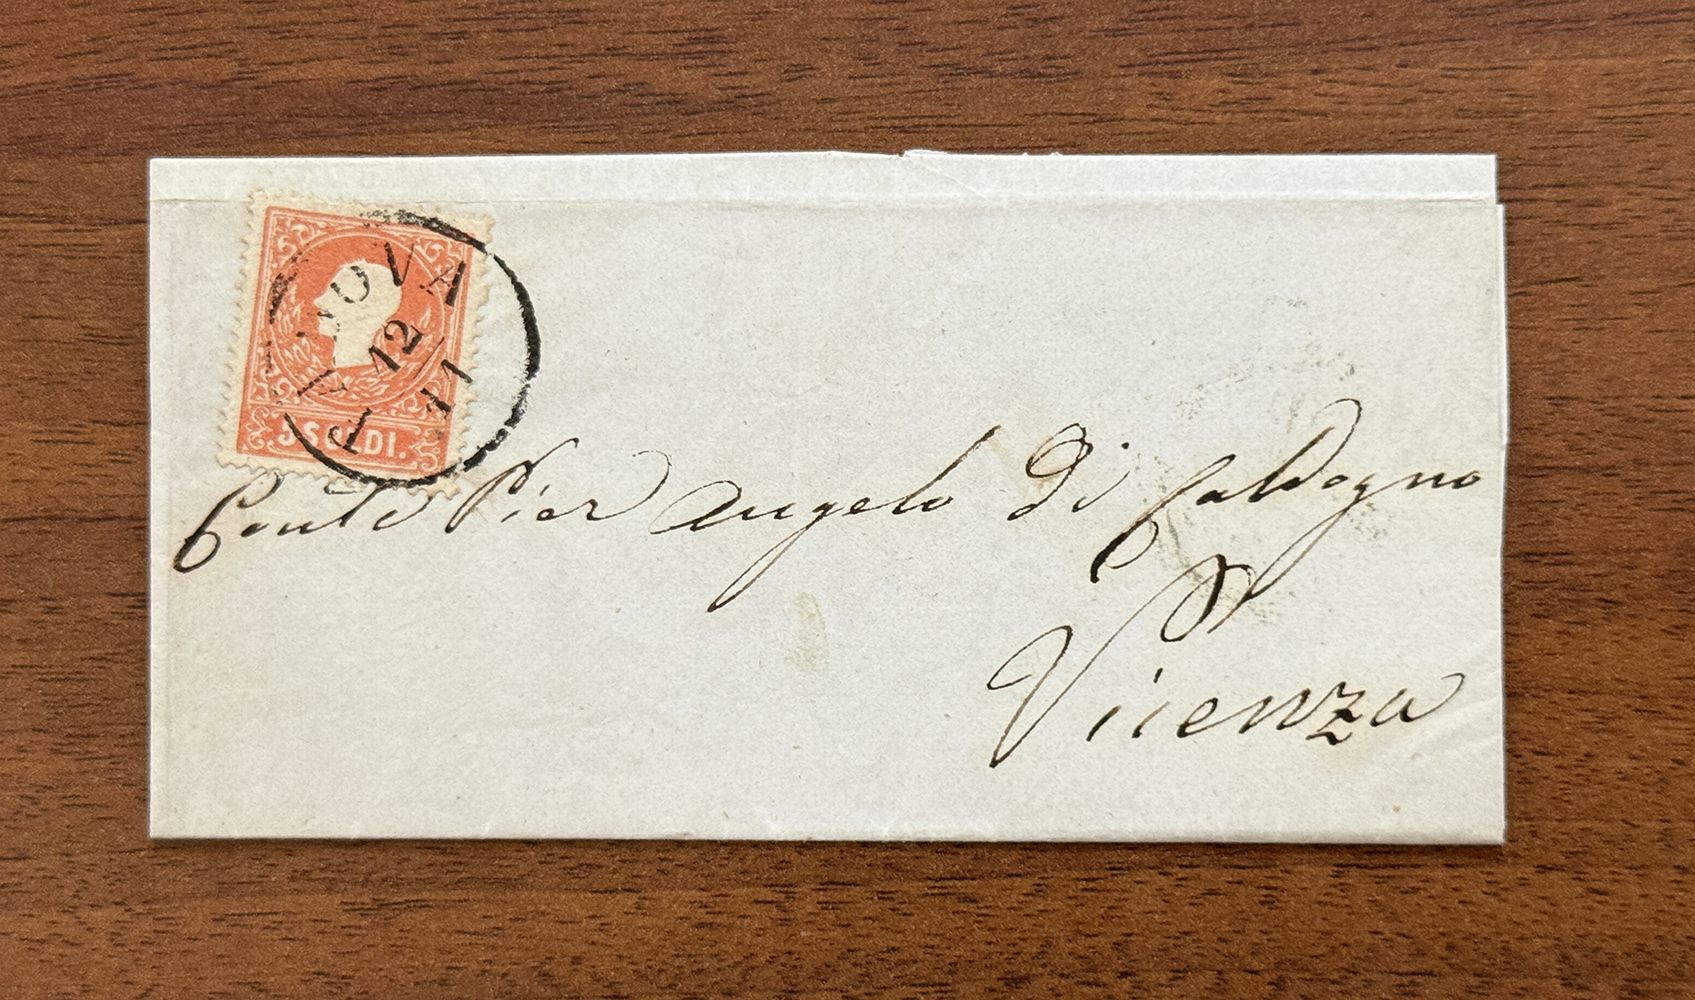 PADOVA
12
11
5 SOLDI.
Conte Pier Angelo Di Caldogno
Vicenza